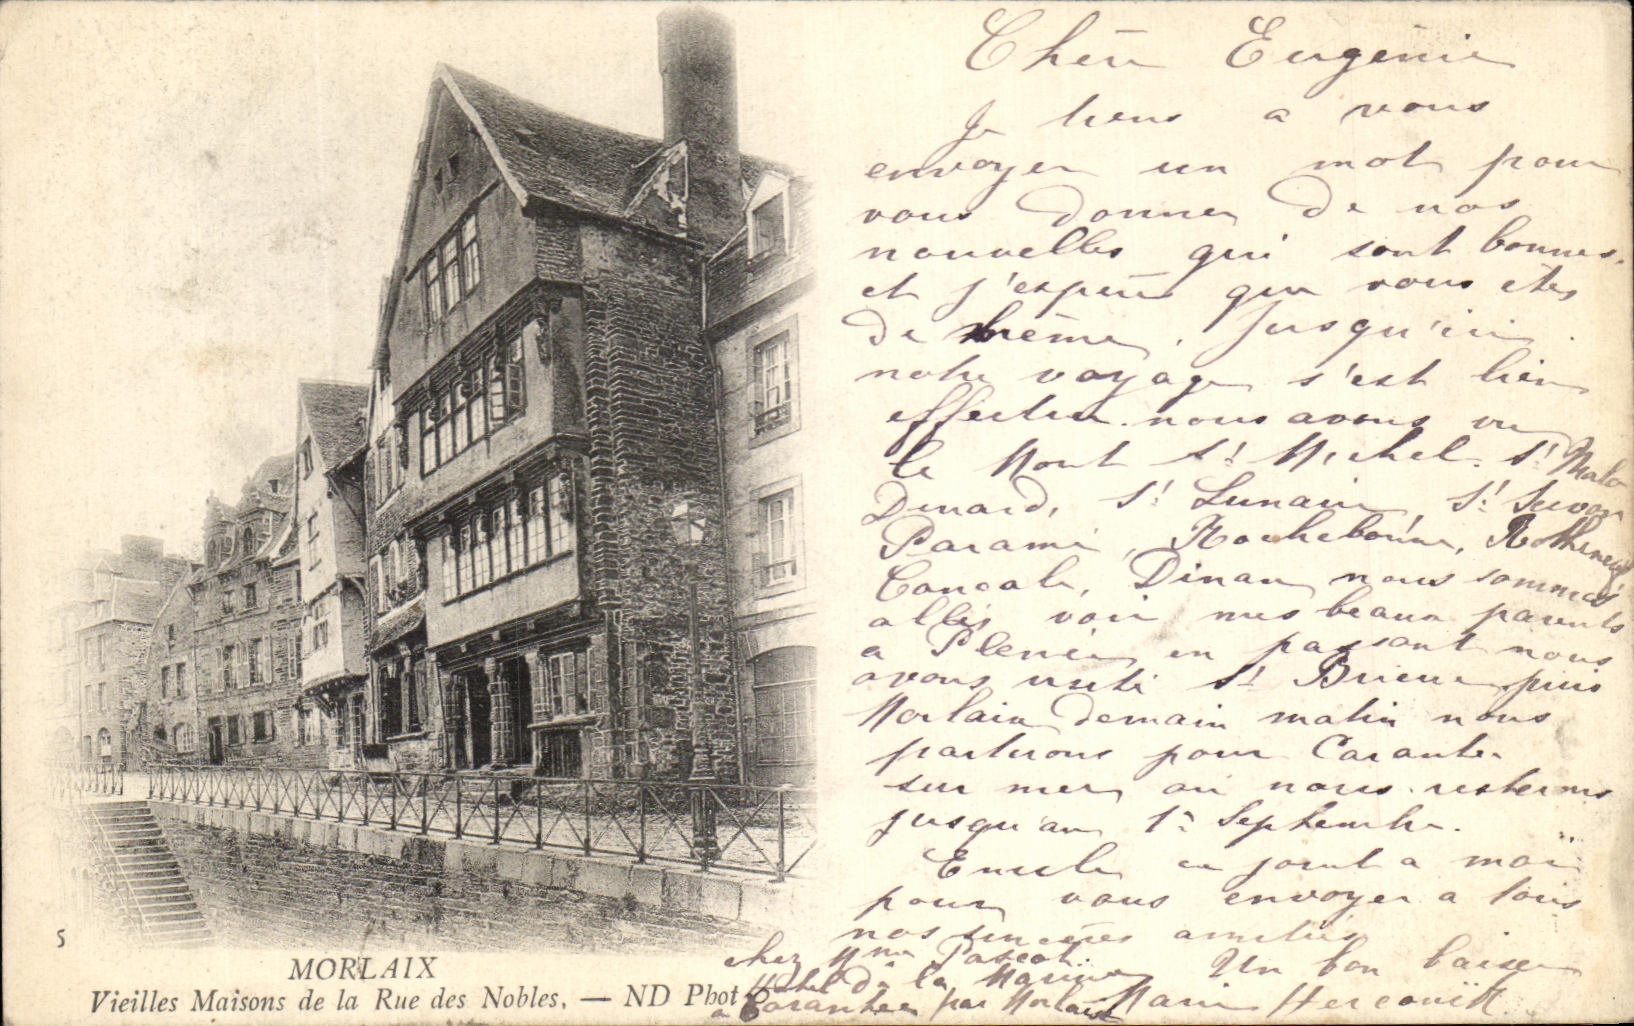 Chère Eugenie
Je tiens a vous
envoyer un mot pour
vous donner de nos
nouvelles qui sont bonnes.
et j'espère que vous etes
de même. Jusqu'ici
notre voyage s'est bien
effectue. nous avons vu
le Mont St Michel. St Malo
Dinard, St Lunaire, St Servan
Parame, Rochebonne, Rotheneuf
Cancale, Dinan nous sommes
allés voir mes beaux parents
a Plenée en passant nous
avons visité St Brieuc puis
Morlaix demain matin nous
partirons pour Carantec
sur mer ou nous resterons
jusqu'au 1er Septembre.
Emile se joint a moi
pour vous envoyer a tous
nos sincères amitiés
Un bon baiser
Marie
chez Mme Pascot
Hotel de la Marine
a Carantec par Morlaix
5
MORLAIX
Vieilles Maisons de la Rue des Nobles. — ND Phot